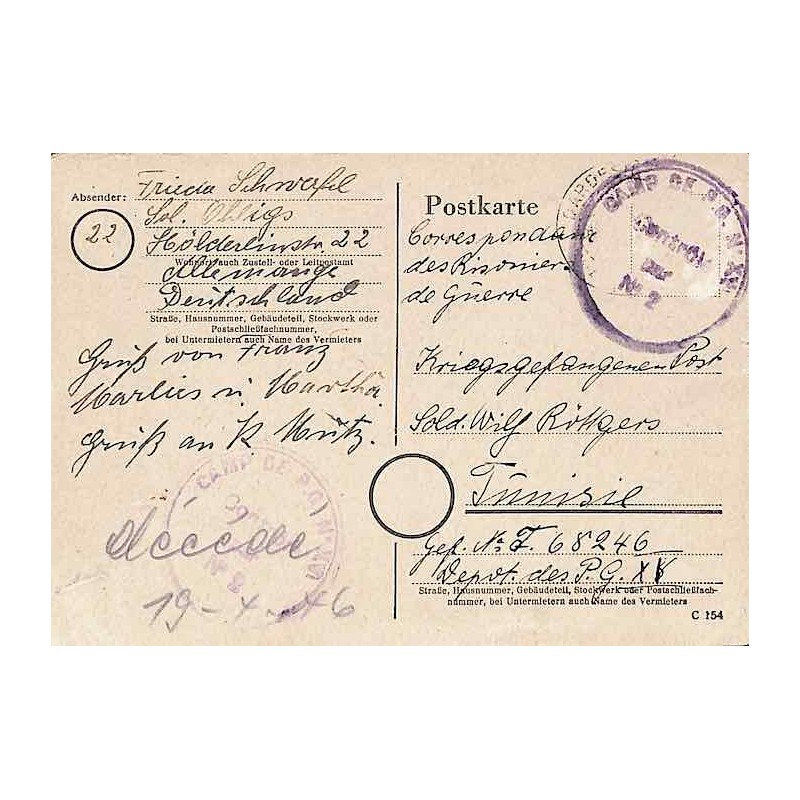 Absender: Frieda Schwafel
Sol. Ohligs
22
Hölderleinstr. 22
Wohnort, auch Zustell- oder Leitpostamt
Allemange
Deutschland
Straße, Hausnummer, Gebäudeteil, Stockwerk oder
Postschließfachnummer,
bei Untermietern auch Name des Vermieters
Gruß von Franz
Marlies u. Martha.
Gruß an K. Mütz.
CAMP DE P.G. N°
décédé
19-4-46
Postkarte
Correspondanz
des Prisoniers
de Guerre
CAMP DE P.G. N° XV
N° 2
Kriegsgefangenen Post
Sold. Wilf Röttgers
Tunisie
Gef. No. T. 68246
Depot. des P.G. XV
Straße, Hausnummer, Gebäudeteil, Stockwerk oder Postschließfach-
nummer, bei Untermietern auch Name des Vermieters
C 154